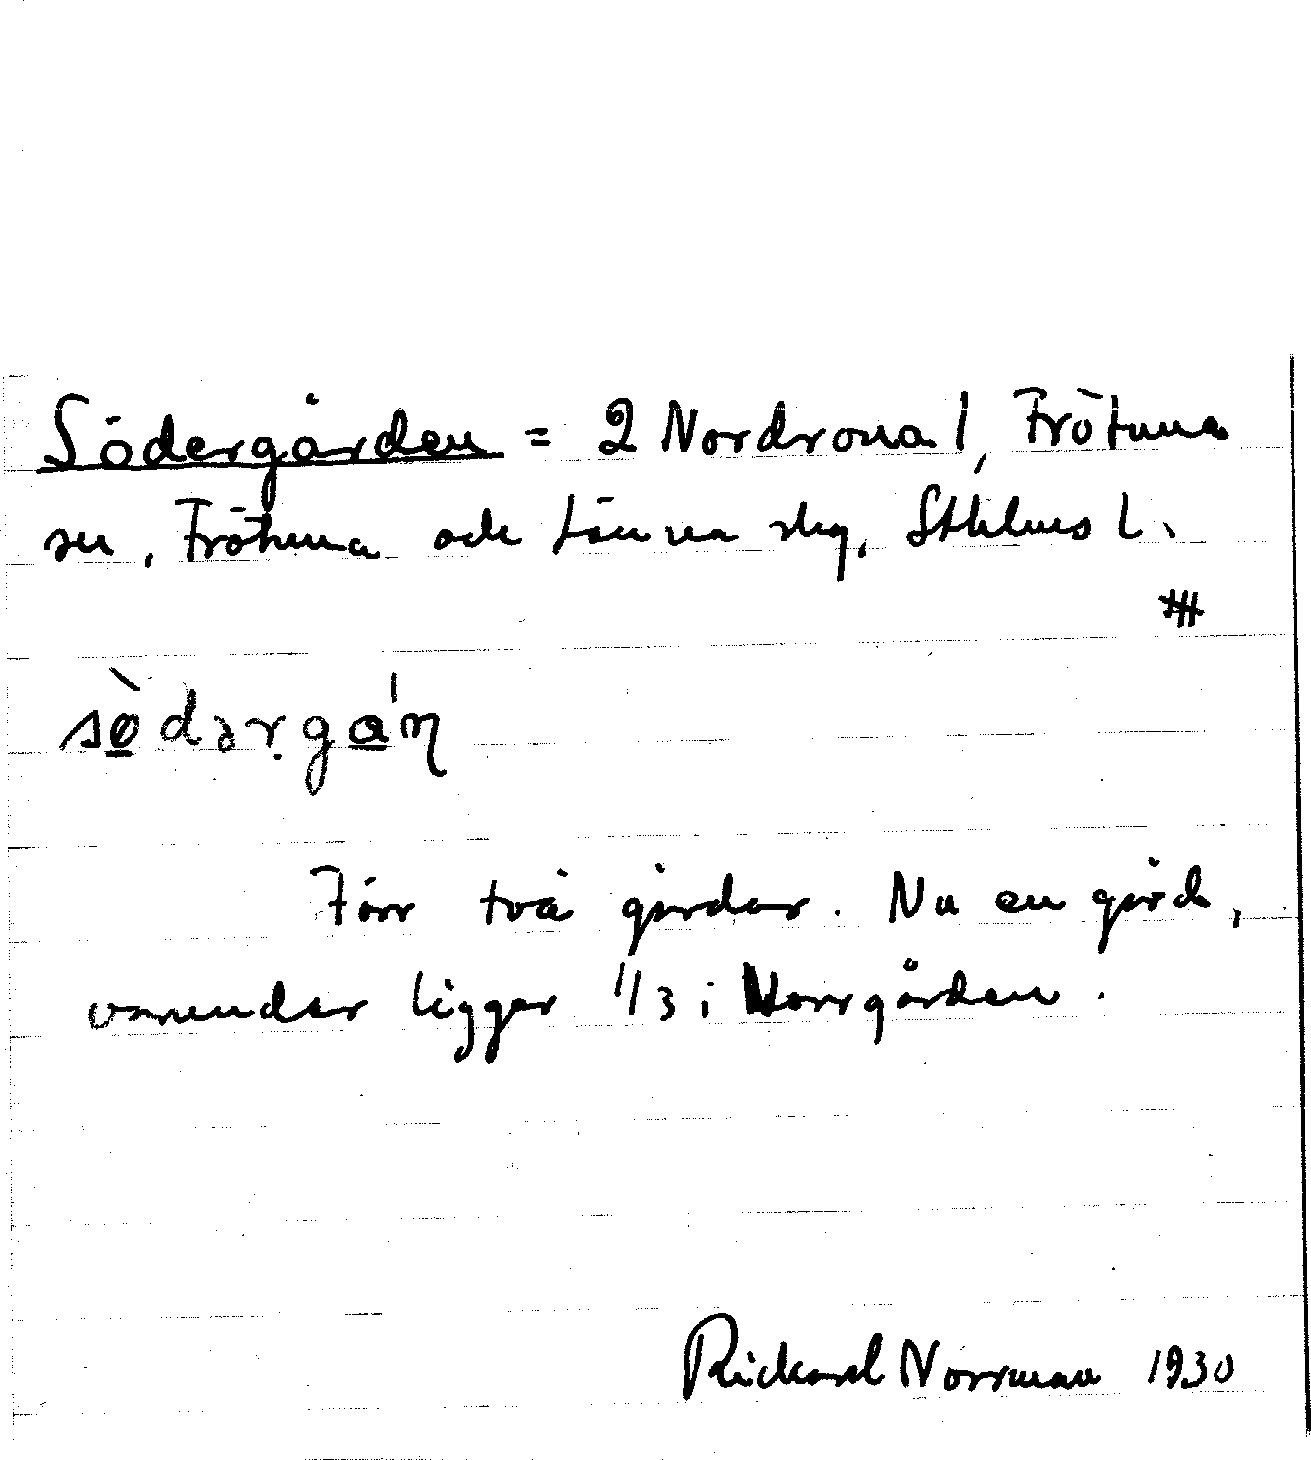 Södergården = 2 Nordrona 1, Frötuna
sn, Frötuna och Länna skg, Sthlms l.
sø̀dərga̍ɳ
Förr två gårdar. Nu en gård,
varunder ligger 1/3 i Norrgården.
Rickard Norrman 1930